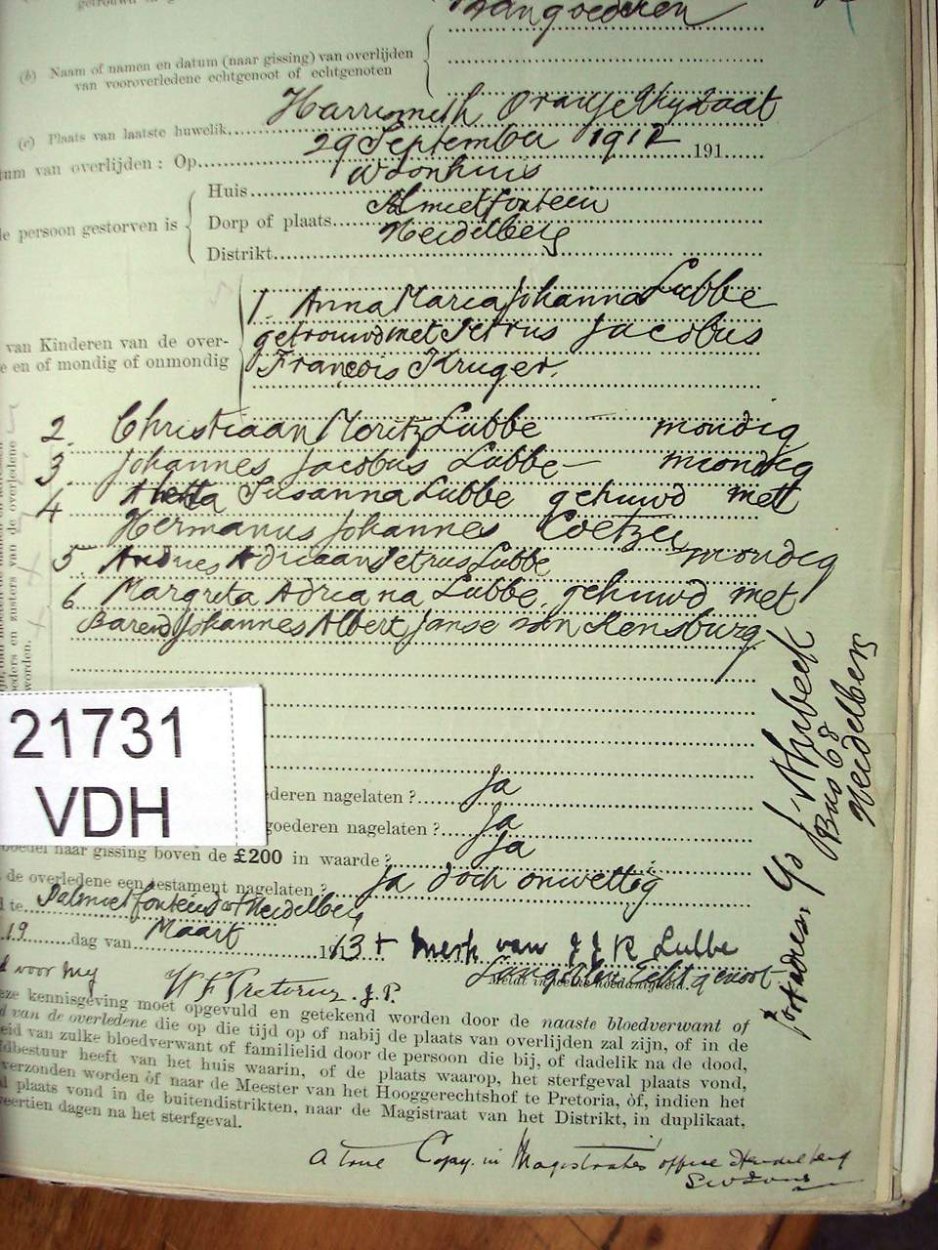 (b) Naam of namen en datum (naar gissing) van overlijden
van vooroverledene echtgenoot of echtgenoten
(c) Plaats van laatste huwelik Harrismith Oranje Vrystaat
um van overlijden: Op 29 September 1912 191
Huis woonhuis
le persoon gestorven is
Dorp of plaats
Distrikt Heidelberg
van Kinderen van de over-
e en of mondig of onmondig
1. Anna Maria Johanna Lubbe
getrouwd met Petrus Jacobus
François Kruger.
2. Christiaan Moritz Lubbe mondig
3. Johannes Jacobus Lubbe – mondig
4 Aletta Susanna Lubbe gehuwd met
Hermanus Johannes Coetzee
5. Andries Adriaan Petrus Lubbe mondig
6 Margreta Adriana Lubbe. gehuwd met
Barend Johannes Albert Janse van Rensburg
21731
VDH
ederen nagelaten? Ja
goederen nagelaten? Ja
boedel naar gissing boven de £200 in waarde? Ja
de overledene een testament nagelaten? Ja doch onwettig
d te Palmietfontein Heidelberg
19 dag van Maart 1913 + merk van J J R Lubbe
Langstlev Echtgenoot
d voor my
Pretorius. J.P.
eze kennisgeving moet opgevuld en getekend worden door de naaste bloedverwant of
d van de overledene die op die tijd op of nabij de plaats van overlijden zal zijn, of in de
eid van zulke bloedverwant of familielid door de persoon die bij, of dadelik na de dood,
ldbestuur heeft van het huis waarin, of de plaats waarop, het sterfgeval plaats vond,
verzonden worden òf naar de Meester van het Hooggerechtshof te Pretoria, òf, indien het
l plaats vond in de buitendistrikten, naar de Magistraat van het Distrikt, in duplikaat,
eertien dagen na het sterfgeval.
Bus 68
Heidelberg
A true Copy. in Magistrates office Heidelberg